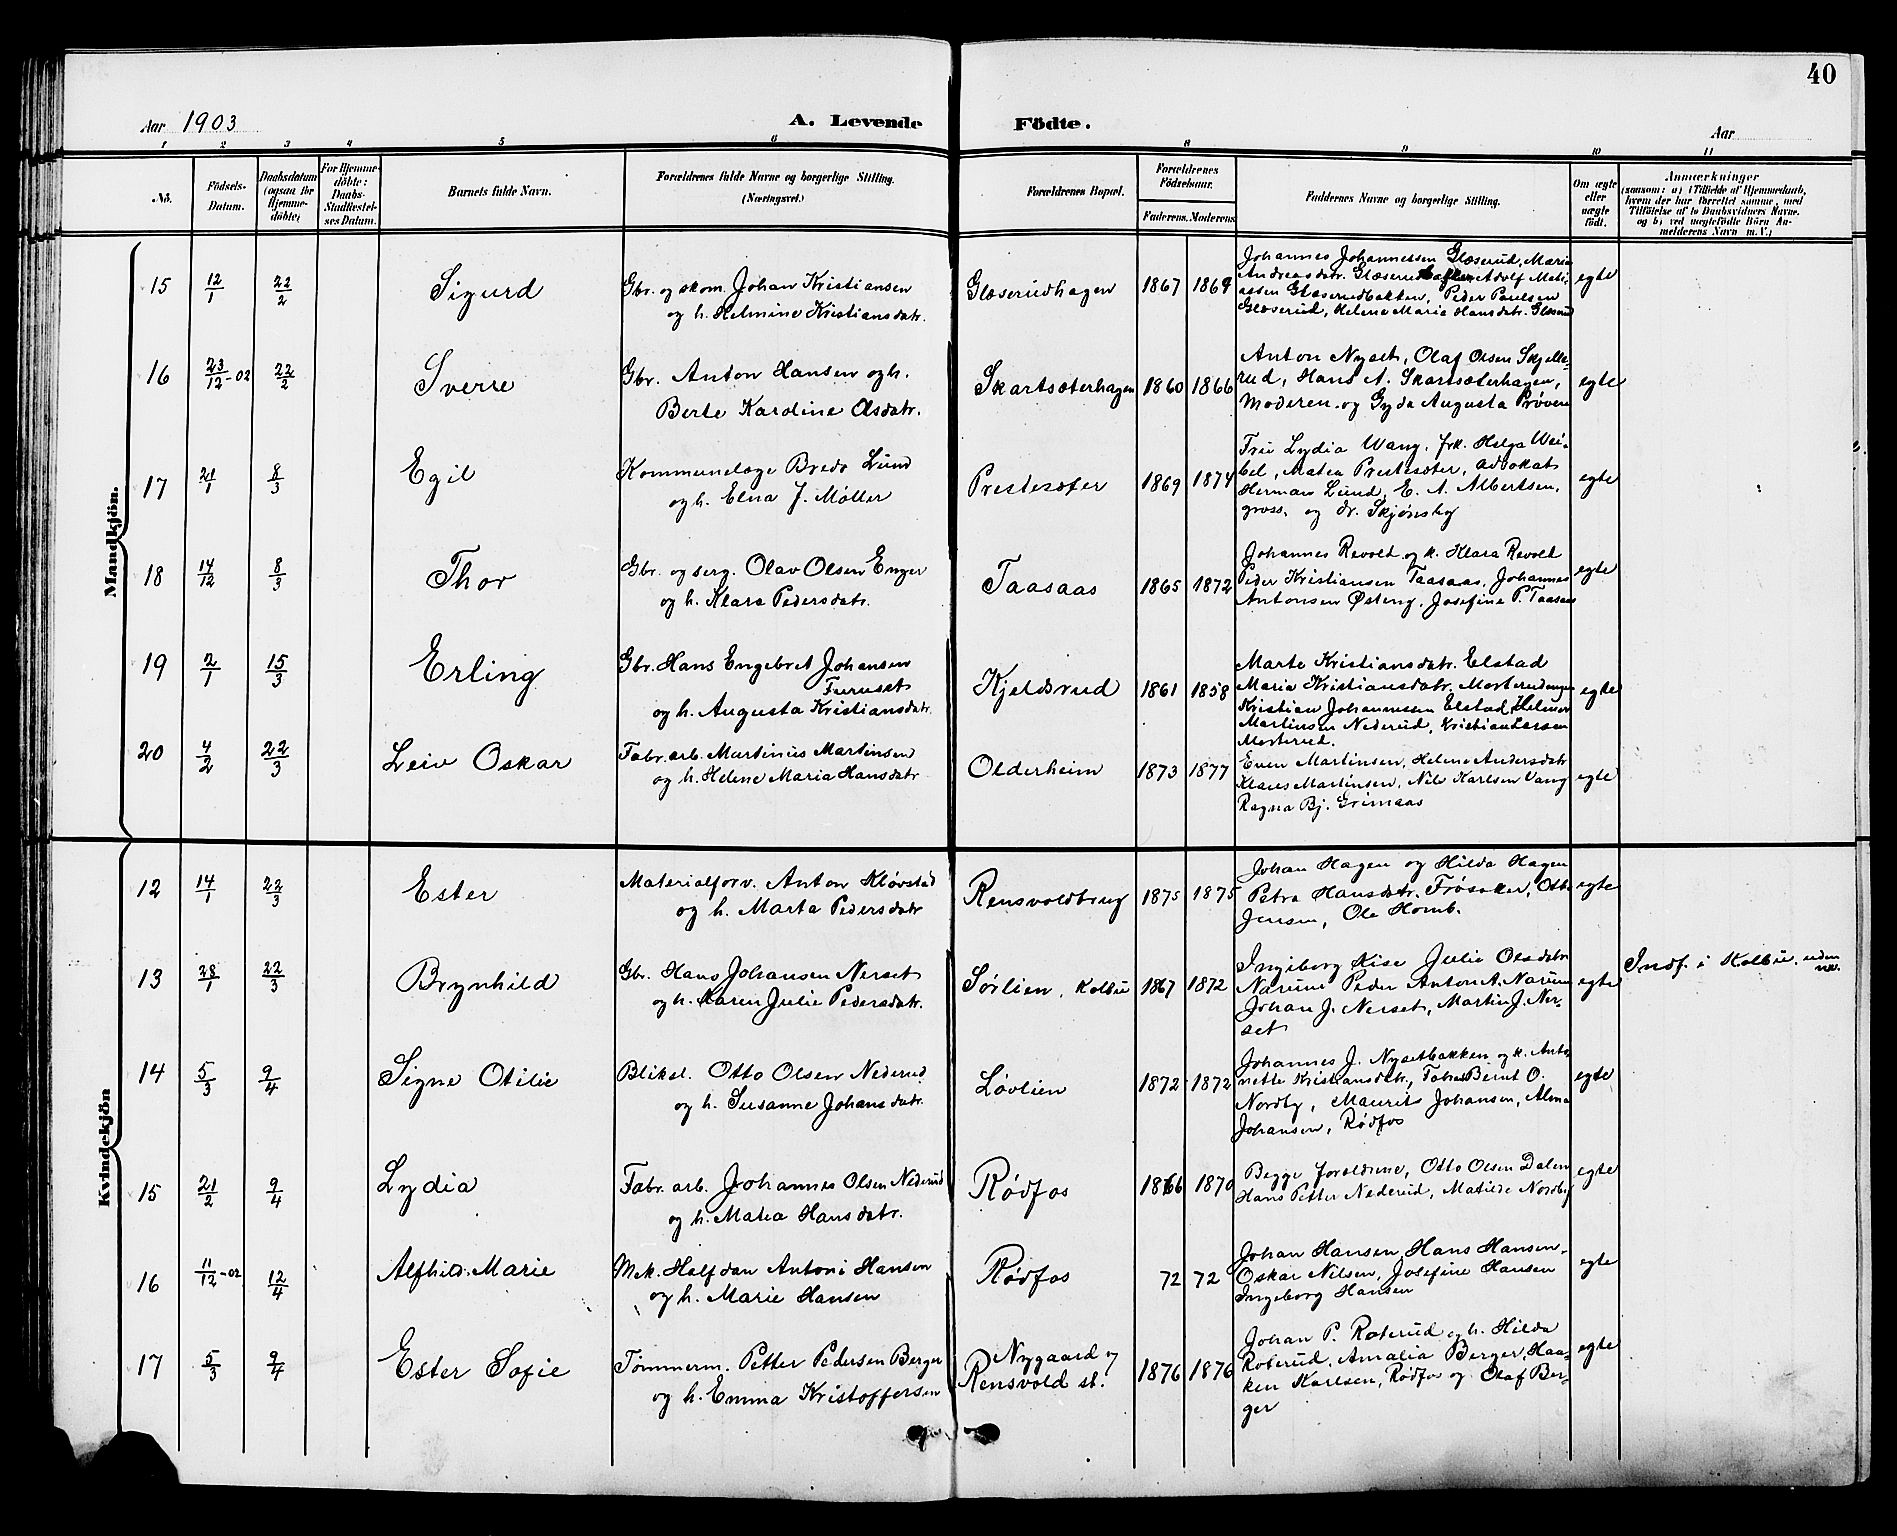 40
Aar 1903
A. Levende Födte.
Aar
1 2 3 4 5 6 8 9 10 11
No.
Födsels-Datum.
Daabsdatum (ogsaa for Hjemme-döbte)
For Hjemme-döbte: Daabs-Stadfæstel-ses Datum.
Barnets fulde Navn.
Forældrenes fulde Navne og borgerlige Stilling. (Næringsvei.)
Forældrenes Bopæl.
Forældrenes Födselsaar.
Faderens. Moderens.
Faddernes Navne og borgerlige Stilling.
Om ægte eller uægte födt.
Anmærkninger
(saasom: a) i Tilfælde af Hjemmedaab, hvem der har forrettet samme, med Tilföielse af to Daabsvidners Navne. og b) ved uægtefödte Börn An-melderens Navn m. V.)
Mandkjön.
15 12/1 22/2 Sigurd
Gbr. og skom. Johan Kristiansen
og h. Helmine Kristiansdatr.
Glæserudhagen 1867 1869
Johannes Johannessen Glæserud, Maria
Andreasdatr. Adolf Mati-
assen Glæserudbakken, Peder Paulsen
Glæserud, Helene Maria Hansdatr. Glæserud
egte
16 23/12-02 22/2 Sverre
Gbr. Anton Hansen og h.
Berte Karoline Olsdatr.
Skartsæterhagen 1860 1866
Anton Nyset, Olaf Olsen Skjelle-
rud, Hans A. Skartsæterhagen,
Moderen og Gyda Augusta Prøven
egte
17 21/1 8/3 Egil
Kommunelæge Bredo Lund
og h. Elna J. Møller
Prestesæter 1869 1874
Frue Lydia Wang, frk. Helga Wei-
bel, Matea Prestesæter, advokat
Herman Lund, E. A. Albertsen,
gross. og dr. Skjønsby
egte
18 14/12 8/3 Thor
Gbr. og serg. Olav Olsen Enger
og h. Klara Pedersdatr.
Taasaas 1865 1872
Johannes Revold og k. Klara Revold
Peder Kristiansen Taasaas, Johannes
Antonsen Østeng, Josefine P. Taasaas
egte
19 2/1 15/3 Erling
Gbr. Hans Engebret Johansen
Furuset
og h. Augusta Kristiansdatr.
Kjeldsrud 1861 1858
Marte Kristiansdatr. Elstad
Maria Kristiansdatr. Morterudengen
Kristian Johannessen Elstad, Helmer
Martinsen Nederud, Kristian Larsen
Morterud.
egte
20 4/2 22/3 Leiv Oskar
Fabr. arb. Martinus Martinsen
og h. Helene Maria Hansdatr
Olderheim 1873 1877
Even Martinsen, Helene Andersdatr
Klaus Martinsen, Nils Karlsen Vang
Ragna Bj. Grimaas
egte
Kvindekjön
12 14/1 22/3 Ester
Materialforv. Anton Kløvstad
og h. Marta Pedersdatr
Rensvoldbrug 1875 1875
Johan Hagen og Hilda Hagen
Petra Hansdatr. Frøsaker, Otto
Jensen, Ole Homb.
egte
13 28/1 22/3 Brynhild
Gbr. Hans Johansen Nerset
og h. Karen Julie Pedersdatr.
Sørlien, Kolbu 1867 1872
Ingeborg Kise Julie Olsdatr
Narum Peder Anton A. Narum
Johan J. Nerset, Martin J. Ner-
set
egte
Indf. i Kolbu uden
nr.
14 5/3 9/4 Signe Otilie
Bliksl. Otto Olsen Nederud
og h. Susanne Johansdatr.
Løvlien 1872 1872
Johannes J. Nysetbakken og k. Anto-
nette Kristiansdatr, Bernt O.
Nordby, Maurits Johansen, Alma
Johansen, Rødfos
egte
15 21/2 9/4 Lydia
Fabr. arb. Johannes Olsen Nederud
og h. Matea Hansdatr.
Rødfos 1866 1870
Begge foreldrene, Otto Olsen Dalen
Hans Petter Nederud, Matilde Nordby
egte
16 11/12-02 12/4 Alfhild Marie
Mek. Halfdan Antoni Hansen
og h. Marie Hansen
Rødfos 72 72
Johan Hansen, Hans Hansen,
Oskar Nilsen, Josefine Hansen
Ingeborg Hansen
egte
17 5/3 9/4 Ester Sofie
Tømmerm. Petter Pedersen Berger
og h. Emma Kristoffersen
Nygaard og
Rensvold st. 1876 1876
Johan P. Roterud og h. Hilda
Roterud, Amalia Berger, Haa-
ken Karlsen, Rødfos og Olaf Ber-
ger
egte